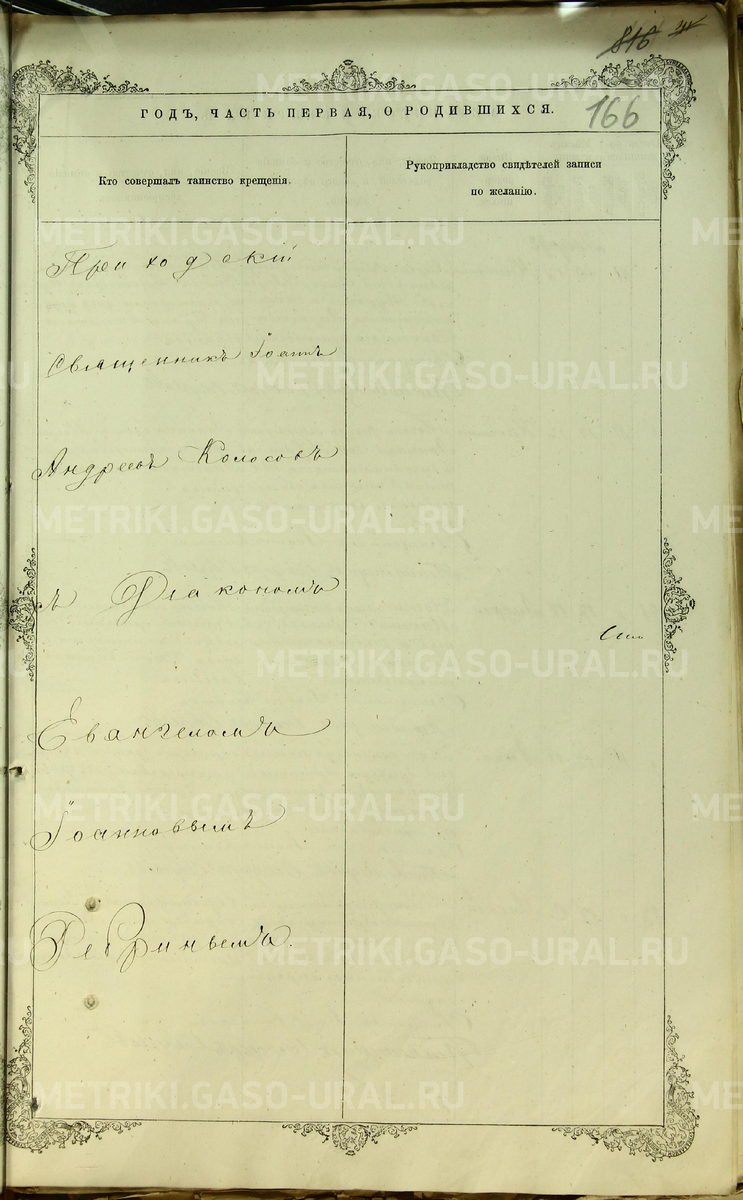 816
166
ГОДЪ, ЧАСТЬ ПЕРВАЯ, О РОДИВШИХСЯ.
Кто совершалъ таинство крещенія.
Рукоприкладство свидѣтелей записи
по желанію.
Приходскій
Священникъ Іоаннъ
Андреевъ Колосовъ
съ Діакономъ
Евангеломъ
Іоанновымъ
Ребринымъ.
METRIKI.GASO-URAL.RU